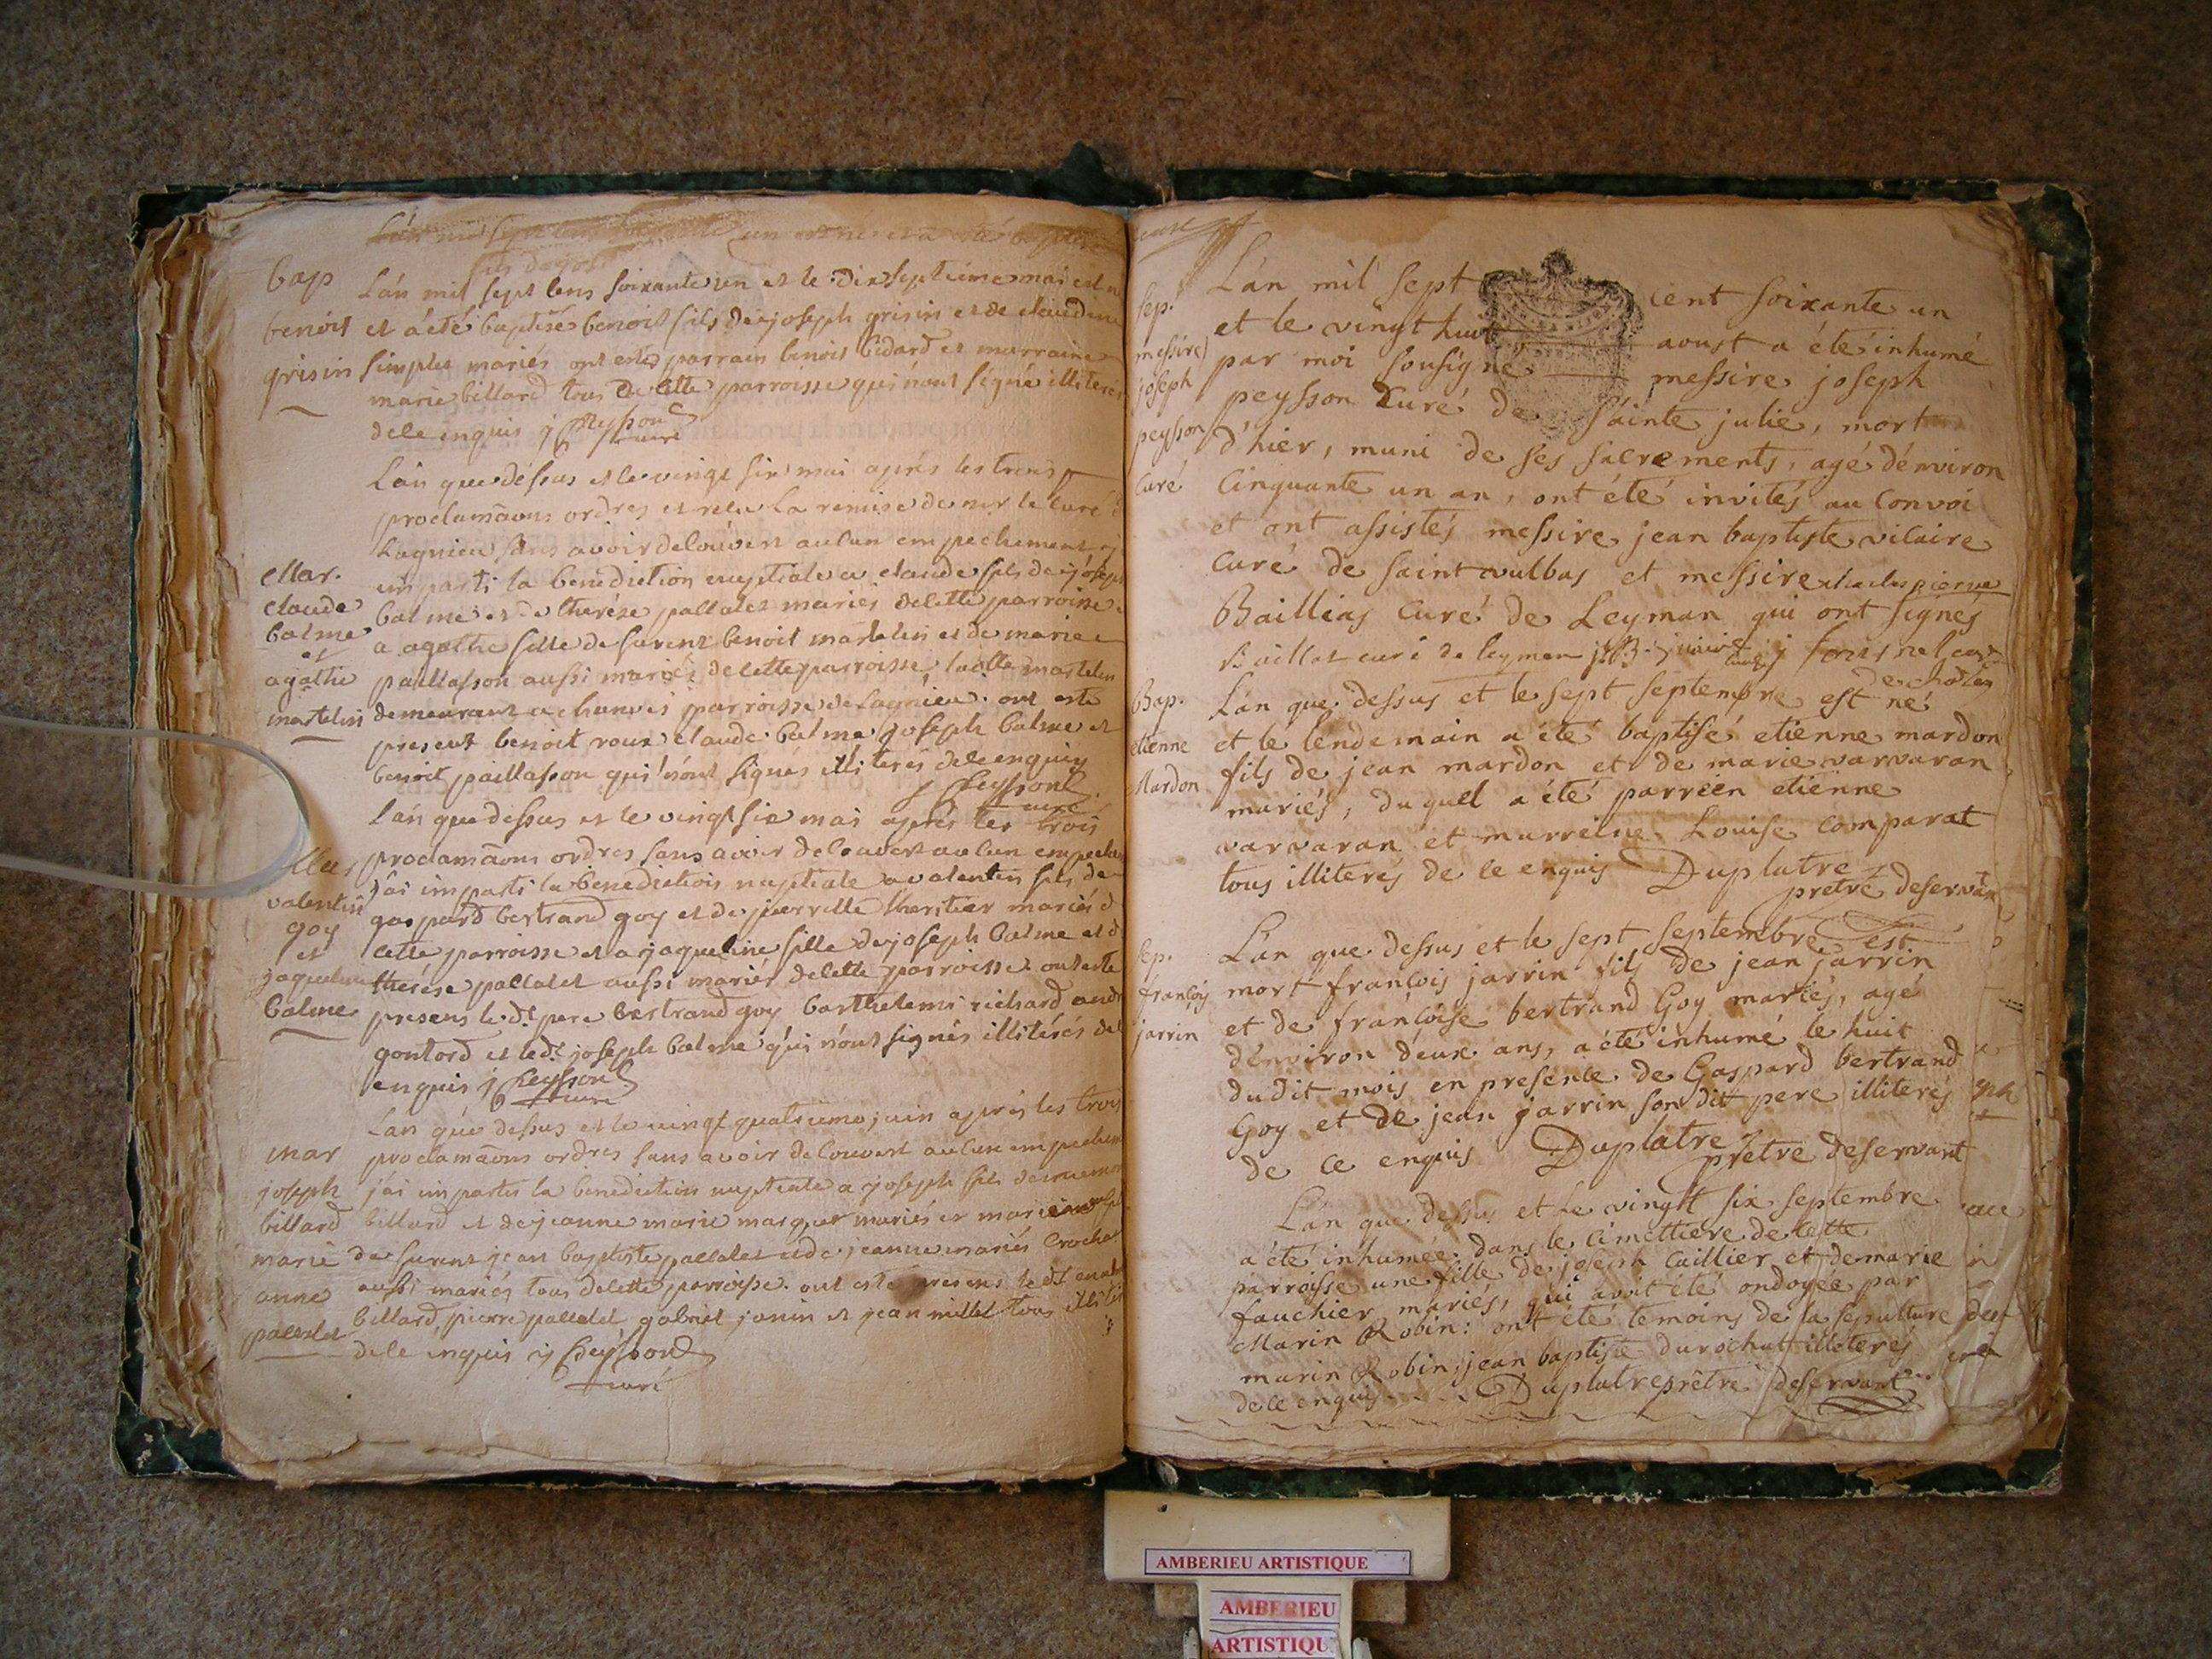 bap
benoit
grisin
L'an mil sept cens soixante un et le dix septieme mai est
et a été baptisé benoit fils de joseph grisin et de claudine
simplet mariés ont esté parrain benoit bidard et marraine
marie billard tous de cette parroisse qui n'ont signé illiteres
de ce enquis j Peysson
curé
L'an que dessus et le vingt six mai après les trois
proclamaons ordres et veu la remise de mr le curé
Lagnieu sans avoir decouvert aucun empechement
Mar.
claude
balme
et
agathe
martelin
imparti la benediction nuptiale a claude fils de joseph
balme et de therése pallalet mariés de cette parroisse
a agathe fille de furent benoit martelin et de marie
paillasson aussi mariés de cette parroisse, laditte martelin
demeurant a chanves parroisse de Lagnieu. ont esté
present benoit roux claude balme joseph balme et
benoit paillasson qui n'ont signés illiterés de ce enquis
j Peysson
curé
L'an que dessus et le vingt six mai après les trois
proclamaons ordres sans avoir decouvert aucun empeche
valentin
goy
et
jaqueline
balme
j'ai imparti la benediction nuptiale a valentin fils de
gaspard bertrand goy et de pierrette theritier mariés d
cette parroisse et a jaqueline fille de joseph balme et d
therése pallalet aussi mariés de cette parroisse. ont esté
presens le dt. pere bertrand goy barthelemi richard andr
gontord et ledt. joseph balme qui n'ont signés illiterés de
enquis j Peysson
curé
L'an que dessus et le vingt quatrieme juin après les trois
mar
joseph
billard
marie
anne
pallalet
proclamaons ordres sans avoir decouvert aucun empechem
j'ai imparti la benediction nuptiale a joseph fils
billard et de jeanne marie marguet mariés et marie
de furent jean baptiste pallalet et de jeanne marie crochet
aussi mariés tous de cette parroisse. ont esté presens le dt.
billard, pierre pallalet gabriel janin et jean millet tous
de ce enquis j Peysson
curé
Sep.
messire
joseph
peysson
curé
L'an mil sept cent soixante un
et le vingt huit aoust a été inhumé
par moi sousigné messire joseph
peysson curé de sainte julie, mort
d'hier, muni de ses sacrements, agé d'environ
cinquante un an, ont été invités au convoi
et ont assistés messire jean baptiste vilaire
curé de saint vulbas et messire charles pierre
Baillias curé de Leyman qui ont signés
Baillat curé de leymen
de cholin
Bap.
etienne
Mardon
L'an que dessus et le sept septembre est né
et le lendemain a été baptisé etienne mardon
fils de jean mardon et de marie varvaran
mariés, duquel a été parrein etienne
varvaran et marreine Louise comparat
tous illiterés de ce enquis Duplatre
prêtre deservant
sep.
françois
jarrin
L'an que dessus et le sept septembre est
mort françois jarrin fils de jean jarrin
et de françoise bertrand Goy mariés, agé
d'environ deux ans, a été inhumé le huit
dudit mois en presence de Gaspard bertrand
Goy et de jean jarrin son dit pere illiterés
de ce enquis Duplatre
prêtre deservant
L'an que dessus et le vingt six septembre
a été inhumée dans le cimettiere de cette
parroisse une fille de joseph caillier et de marie
fauchier mariés, qui avoit été ondoyée par
Marin Robin: ont été temoins de la sepulture
marin Robin, jean baptiste durochat illiterés
de ce enquis Duplatre prêtre deservant
AMBERIEU ARTISTIQUE
AMBERIEU
ARTISTIQU